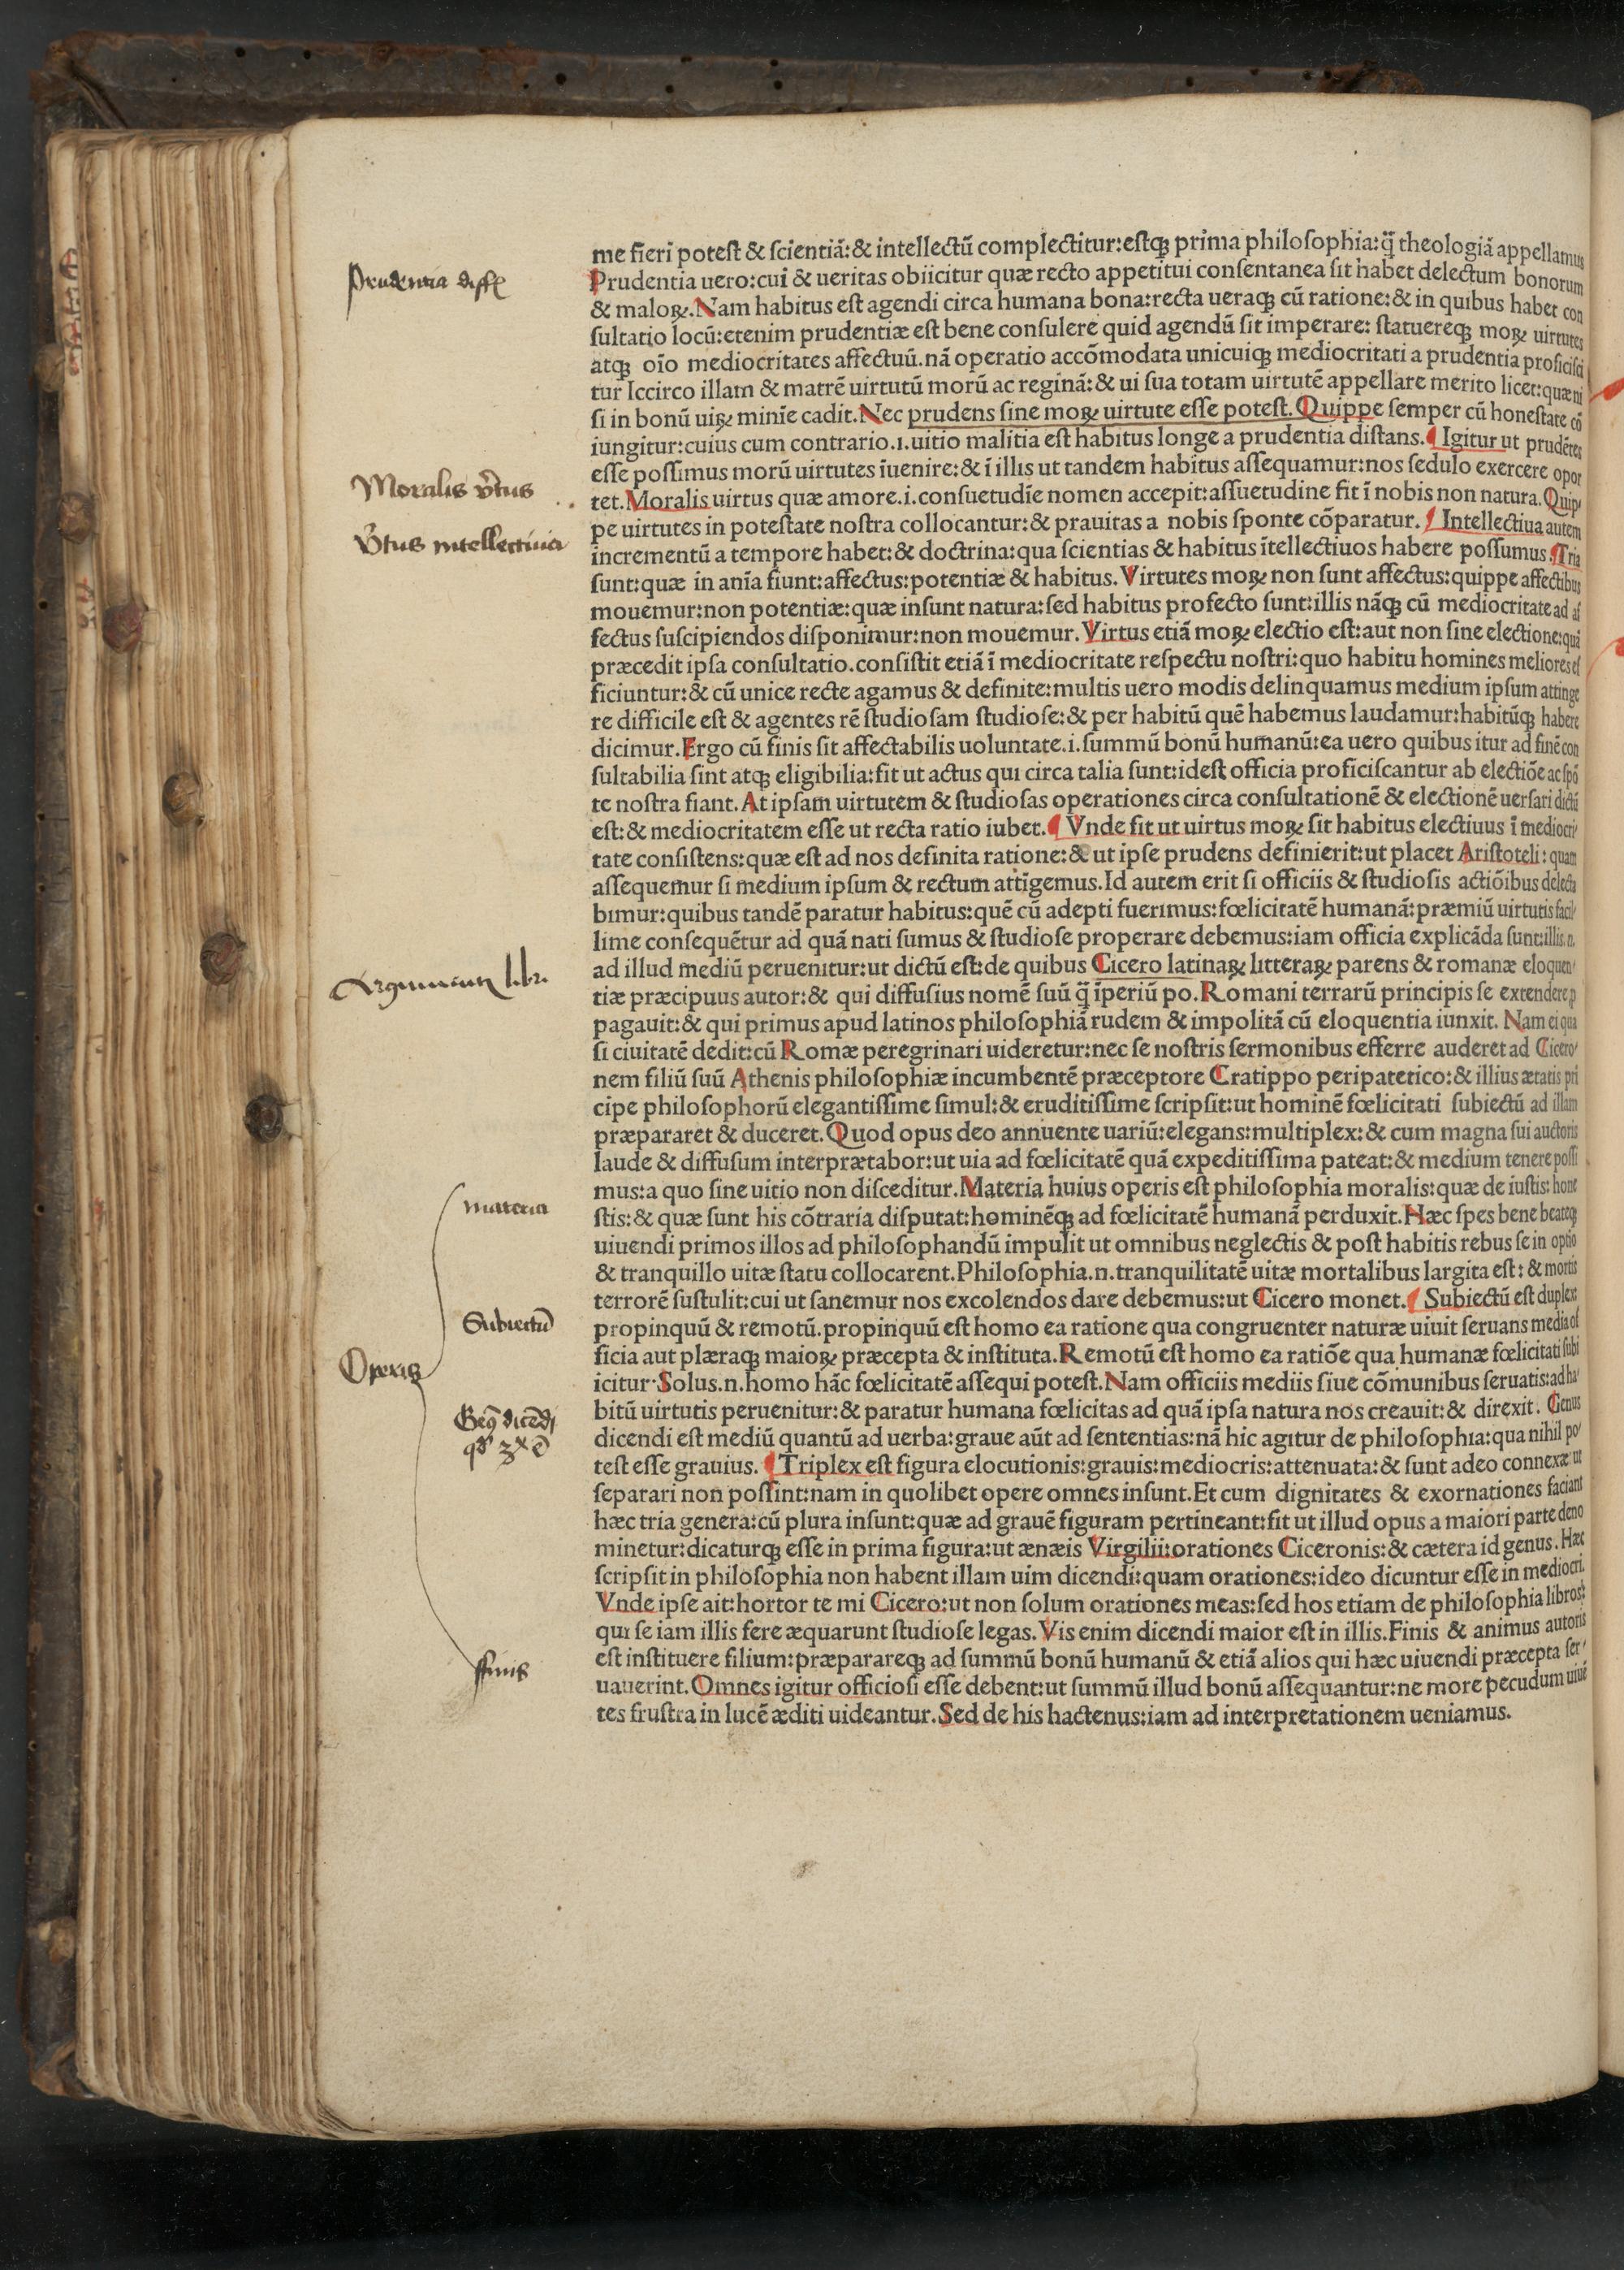 me fieri potest & scientiã:& intellectũ complectitur:estq; prima philosophia:q̃ theologiã appellamus
Prudentia diff
Prudentia uero:cui & ueritas obiicitur quæ recto appetitui consentanea sit habet delectum bonorum
& maloꝝ.Nam habitus est agendi circa humana bona:recta ueraq; cũ ratione:& in quibus habet con
sultatio locũ:etenim prudentiæ est bene consulere quid agendũ sit imperare: statuereq; moꝝ uirtutes
atq; oĩo mediocritates affectuũ.nã operatio accõmodata unicuiq; mediocritati a prudentia proficisci
tur Iccirco illam & matrẽ uirtutũ morũ ac reginã:& ui sua totam uirtutẽ appellare merito licet:quæ ni
si in bonũ uiꝝ minĩe cadit.Nec prudens sine moꝝ uirtute esse potest.Quippe semper cũ honestate cõ
iungitur:cuius cum contrario.i.uitio malitia est habitus longe a prudentia distans.¶ Igitur ut prudẽtes
esse possimus morũ uirtutes ĩuenire:& ĩ illis ut tandem habitus assequamur:nos sedulo exercere opor
Moralis v̄tus
tet.Moralis uirtus quæ amore.i.consuetudĩe nomen accepit:assuetudine fit ĩ nobis non natura.Quip/
pe uirtutes in potestate nostra collocantur:& prauitas a nobis sponte cõparatur.¶ Intellectiua autem
V̄tus intellectiua
incrementũ a tempore habet:& doctrina:qua scientias & habitus ĩtellectiuos habere possumus.¶Tria
sunt:quæ in anĩa fiunt:affectus:potentiæ & habitus.Virtutes moꝝ non sunt affectus:quippe affectibus
mouemur:non potentiæ:quæ insunt natura:sed habitus profecto sunt:illis nãq; cũ mediocritate ad af
fectus suscipiendos disponimur:non mouemur.Virtus etiã moꝝ electio est:aut non sine electione:quã
præcedit ipsa consultatio.consistit etiã ĩ mediocritate respectu nostri:quo habitu homines meliores ef
ficiuntur:& cũ unice recte agamus & definite:multis uero modis delinquamus medium ipsum attinge
re difficile est & agentes rẽ studiosam studiose:& per habitũ quẽ habemus laudamur:habitũq; habere
dicimur.Ergo cũ finis sit affectabilis uoluntate.i.summũ bonũ humanũ:ea uero quibus itur ad finẽ con
sultabilia sint atq; eligibilia:fit ut actus qui circa talia sunt:idest officia proficiscantur ab electiõe ac spõ
te nostra fiant.At ipsam uirtutem & studiosas operationes circa consultationẽ & electionẽ uersari dictũ
est:& mediocritatem esse ut recta ratio iubet.¶ Vnde fit ut uirtus moꝝ sit habitus electiuus ĩ mediocri/
tate consistens:quæ est ad nos definita ratione:& ut ipse prudens definierit:ut placet Aristoteli:quam
assequemur si medium ipsum & rectum attĩgemus.Id autem erit si officiis & studiosis actiõibus delecta
bimur:quibus tandẽ paratur habitus:quẽ cũ adepti fuerimus:fœlicitatẽ humanã:præmiũ uirtutis facil/
lime consequẽtur ad quã nati sumus & studiose properare debemus:iam officia explicãda sunt:illis.n.
Argumentũ libri
ad illud mediũ peruenitur:ut dictũ est:de quibus Cicero latinaꝝ litteraꝝ parens & romanæ eloquen/
tiæ præcipuus autor:& qui diffusius nomẽ suũ q̃ ĩperiũ po.Romani terrarũ principis se extendere p
pagauit:& qui primus apud latinos philosophiã rudem & impolitã cũ eloquentia iunxit. Nam ei qua
si ciuitatẽ dedit:cũ Romæ peregrinari uideretur:nec se nostris sermonibus efferre auderet ad Cicero/
nem filiũ suũ Athenis philosophiæ incumbentẽ præceptore Cratippo peripatetico:& illius ætatis pri
cipe philosophorũ elegantissime simul:& eruditissime scripsit:ut hominẽ fœlicitati subiectũ ad illam
præpararet & duceret.Quod opus deo annuente uariũ:elegans:multiplex:& cum magna sui auctoris
laude & diffusum interprætabor:ut uia ad fœlicitatẽ quã expeditissima pateat:& medium tenere possi
mus:a quo sine uitio non disceditur.Materia huius operis est philosophia moralis:quæ de iustis:hone
materia
stis:& quæ sunt his cõtraria disputat:hominẽq; ad fœlicitatẽ humanã perduxit.Hæc spes bene beateq;
uiuendi primos illos ad philosophandũ impulit ut omnibus neglectis & post habitis rebus se in optio
& tranquillo uitæ statu collocarent.Philosophia.n.tranquilitatẽ uitæ mortalibus largita est:& mortis
terrorẽ sustulit:cui ut sanemur nos excolendos dare debemus:ut Cicero monet.¶ Subiectũ est duplex
Subiectũ
propinquũ & remotũ.propinquũ est homo ea ratione qua congruenter naturæ uiuit seruans media of
Operis
ficia aut plæraq; maioꝝ præcepta & instituta.Remotũ est homo ea ratiõe qua humanæ fœlicitati subi
icitur.Solus.n.homo hãc fœlicitatẽ assequi potest.Nam officiis mediis siue cõmunibus seruatis:ad ha/
bitũ uirtutis peruenitur:& paratur humana fœlicitas ad quã ipsa natura nos creauit:& direxit. Genus
Gen9 dicẽdi
dicendi est mediũ quantũ ad uerba:graue aũt ad sententias:nã hic agitur de philosophia:qua nihil po/
test esse grauius. ¶Triplex est figura elocutionis:grauis:mediocris:attenuata:& sunt adeo connexæ ut
separari non possint:nam in quolibet opere omnes insunt.Et cum dignitates & exornationes faciant
hæc tria genera:cũ plura insunt:quæ ad grauẽ figuram pertineant:fit ut illud opus a maiori parte deno
minetur:dicaturq; esse in prima figura:ut ænæis Virgilii:orationes Ciceronis:& cætera id genus.Hæc
scripsit in philosophia non habent illam uim dicendi:quam orationes:ideo dicuntur esse in mediocri.
Vnde ipse ait:hortor te mi Cicero:ut non solum orationes meas:sed hos etiam de philosophia libros:
qui se iam illis fere æquarunt studiose legas.Vis enim dicendi maior est in illis.Finis & animus autoris
finis
est instituere filium:præparareq; ad summũ bonũ humanũ & etiã alios qui hæc uiuendi præcepta ser/
uauerint.Omnes igitur officiosi esse debent:ut summũ illud bonũ assequantur:ne more pecudum uiuẽ
tes frustra in lucẽ æditi uideantur.Sed de his hactenus:iam ad interpretationem ueniamus.